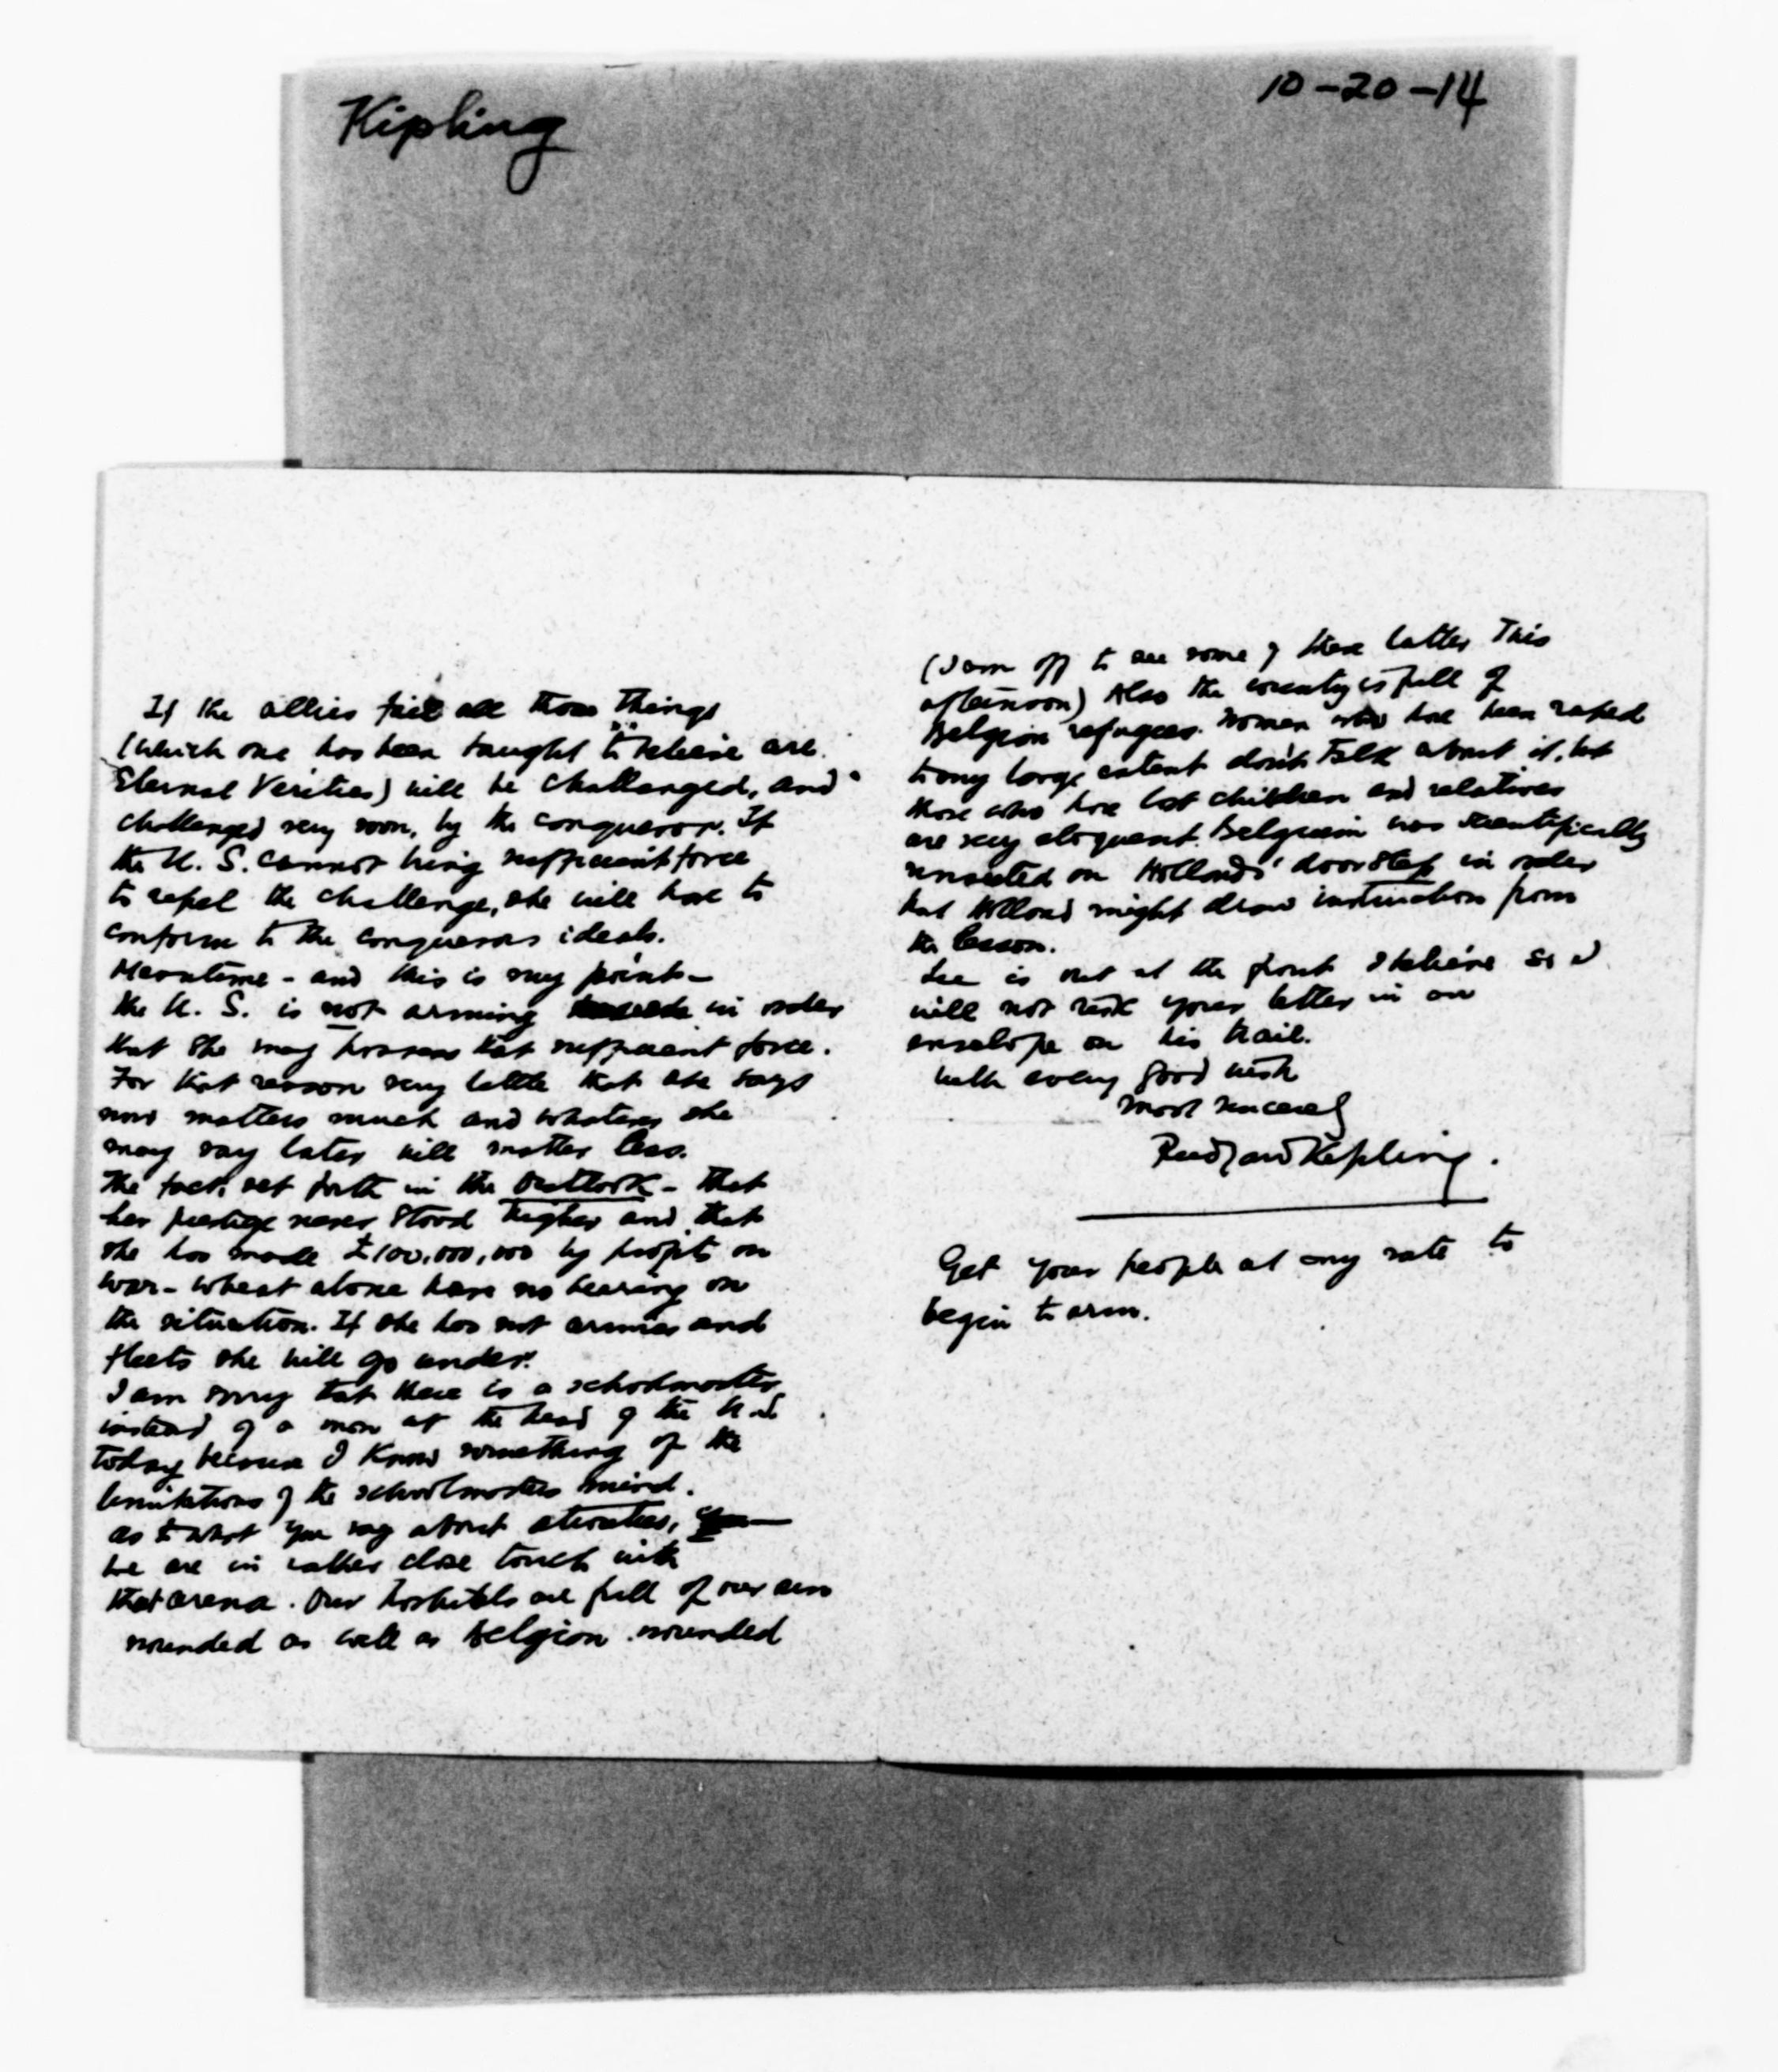 Kipling
10-20-14
If the allies fail all those things
(which one has been taught to believe are
Eternal Verities) will be challenged, and
challenged very soon, by the conqueror. If
the U. S. cannot bring sufficient force
to repel the challenge, she will have to
conform to the conquerors ideals.
Meantime - and this is my point -
the U. S. is not arming in order
that she may possess that sufficient force.
For that reason very little that she says
now matters much and whatever she
may say later will matter less.
The facts set forth in the Outlook - that
her prestige never stood higher and that
she has made £100,000,000 by profits on
war-wheat alone have no bearing on
the situation. If she has not armies and
fleets she will go under.
I am sorry that there is a schoolmaster
instead of a man at the head of the U.S.
today because I know something of the
limitations of the schoolmasters mind.
as to what you say about atrocities,
we are in rather close touch with
that arena. Our hospitals are full of our own
wounded as well as Belgian wounded
(I am off to see some of these latter this
afternoon) Also the country is full of
Belgian refugees. Women who have been raped
to any large extent don't talk about it, but
those who have lost children and relatives
are very eloquent. Belgium was scientifically
on Hollands' doorstep in order
that Holland might draw instruction from
the lesson.
Lee is out at the front I believe so I
will not risk your letter in an
envelope on his trail.
With every good wish
Most sincerely
Rudyard Kipling.
Get your people at any rate to
begin to arm.